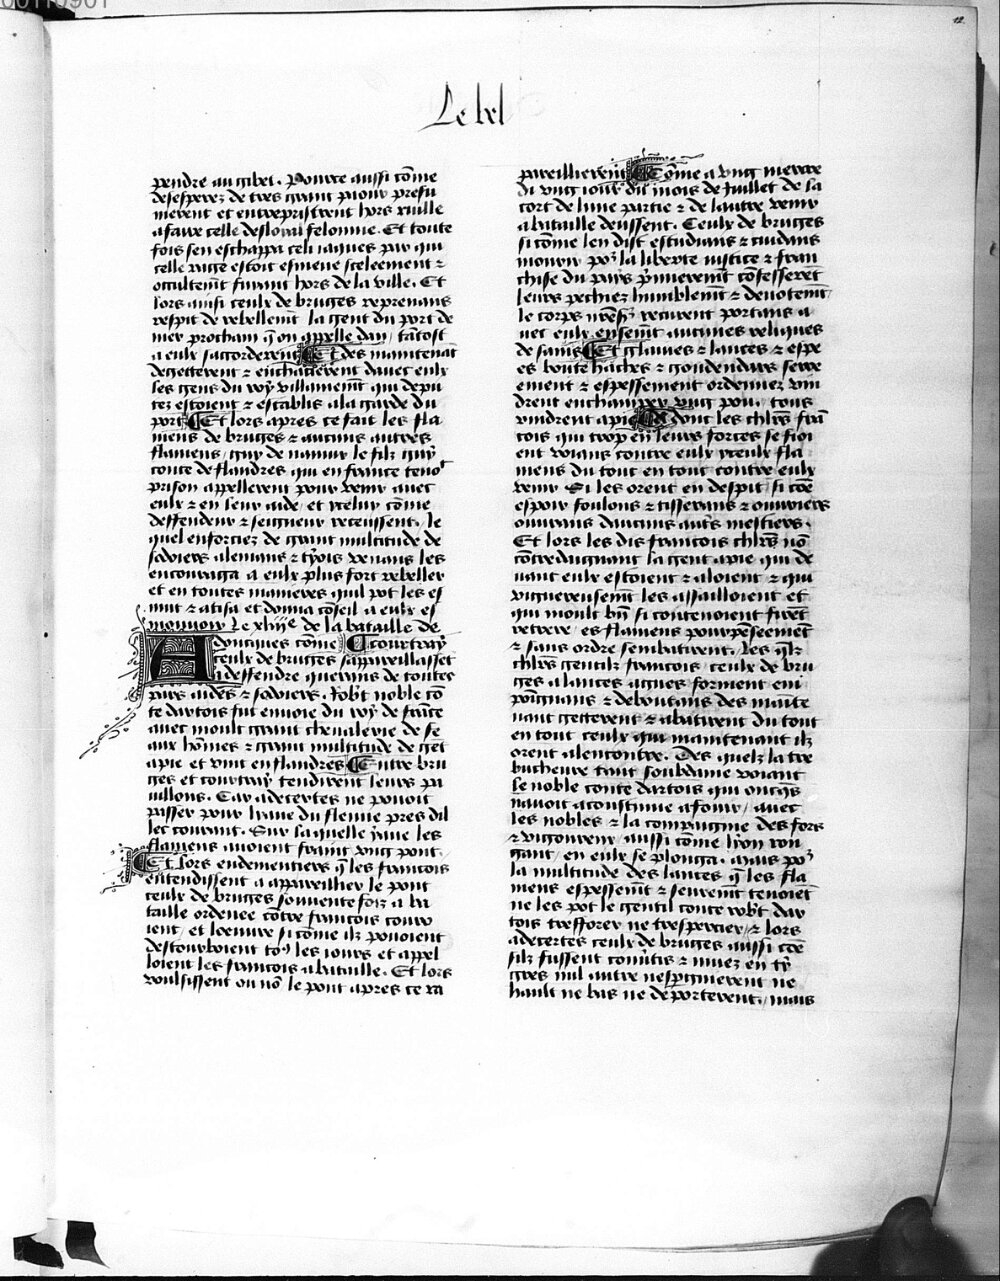 12
Le bel
pendre au gibet. Pource aussi cõme
desesperez de tres grant paour presu
merent et entrepristrent hors ville
a faire celle desloyal felonnie. Et toute
fois sen eschappa cels iaques par qui
celle rage estoit esmeue seleement ⁊
occultemt fuiant hors de la ville. Et
lors ainsi ceulx de bruges reprenans
respit de rebellemt la gent du port de
mer prochain q̃ on appelle dan / tãtost
a eulx sacorderent Et des maintenãt
degecterent ⁊ enchacierent dauec eulx
les gens du roy villainemt qui depu
tez estoient ⁊ establis a la garde du
port Et lors apres ce fait les fla
mens de bruges ⁊ aucuns autres
flamens / guy de namur le filz guy
conte de flandres qui en france tenoit
prison appellerent pour venir auec
eulx ⁊ en leur aide / et icelui cõme
deffendeur ⁊ seigneur receussent. le
quel enforciez de grant multitude de
sodoiers alemans ⁊ tyois venans les
encouraga a eulx plus fort rebeller
et en toutes manieres quil pot les es
mut ⁊ atisa et donna cõseil a eulx es
mouuoir Le xliiiᵉ de la bataille de
Adoncques cõme Courtray
ceulx de bruges sappareillasset
a deffendre querans de toutes
pars aides ⁊ sodoiers. Robt noble cõ
te dartois fut enuoie du roy de frãce
auec moult grant cheualerie de se
aux hõmes ⁊ grant multitude de gẽt
a pie et vint en flandres Entre bru
ges et courtray tendirent leurs pa
uillons. Car adecertes ne pouoit
passer pour leaue du fleuue pres dil
lec courant. Sur laquelle yaue les
flamens auoient fraint vng pont.
Et lors endementiers q̃ les francois
entendissent a appareillier le pont
ceulx de bruges souuentefoiz a ba
taille ordenee cõtre francois couru
ient / et loeuure si cõme ilz pouoient
destourboient toꝰ les iours et appel
loient les francois a bataille. Et lors
voulsissent ou nõ le pont apres ce ra
pareillierent Cõme a vng mercre
di vng iour du mois de Juillet de la
cort de lune partie ⁊ de lautre venir
a bataille deussent. Ceulx de bruges
si cõme len dist estudians ⁊ cuidans
mourir poꝰ la liberte iustice ⁊ fran
chise du pays p̃mierement cõfesserẽt
leurs pechiez humblemt ⁊ deuotemt
le corps nr̃es receurent portans a
uec eulx ensemt aucunes reliques
de sains Et glaiues ⁊ lances ⁊ espe
es boute haches ⁊ goudendars serre
ement ⁊ espessement ordenez vin
drent enchamper vng pou / tous
vindrent a pie Et dont les chlrs frã
cois qui trop en leurs forces se fioi
ent voians contre eulx yceulx fla
mens du tout en tout contre eulx
venir Si les orent en despit si cõe
espoir foulons ⁊ tisserans ⁊ ouuriers
ouurans daucuns autrs mestiers.
Et lors les dis francois chlrs nõ
cõtredaignant la gent a pie qui de
uant eulx estoient ⁊ aloient ⁊ qui
vigureusemt les assailloient et
qui moult bñ si contenoient firẽt
retrere / es flamens pourpeseemẽt
⁊ sans ordre sembatirent. les qlz
chlrs gentilz francois ceulx de bru
ges a lances agues forment em
poignans ⁊ deboutans des mainte
nant gecterent ⁊ abatirent du tout
en tout ceulx qui maintenant ilz
orent alencontre. Des quelz la tre
bucheure tant soubdaine voiant
le noble conte dartois qui oncq̃s
nauoit acoustume a fouir / auec
les nobles ⁊ la compaignie des fors
⁊ vigoureux / aussi cõme lyon ron
gant / en eulx se plonga. Mais poꝰ
la multitude des lances q̃ les fla
mens espessemt ⁊ serremt tenoiẽt
ne les pot le gentil conte robt dar
tois tresforer ne trespercier / ⁊ lors
adecertes ceulx de bruges aussi cõe
silz fussent conutis ⁊ muez en ty
gres nul autre nespargnierent ne
hault ne bas ne deporterent / mais